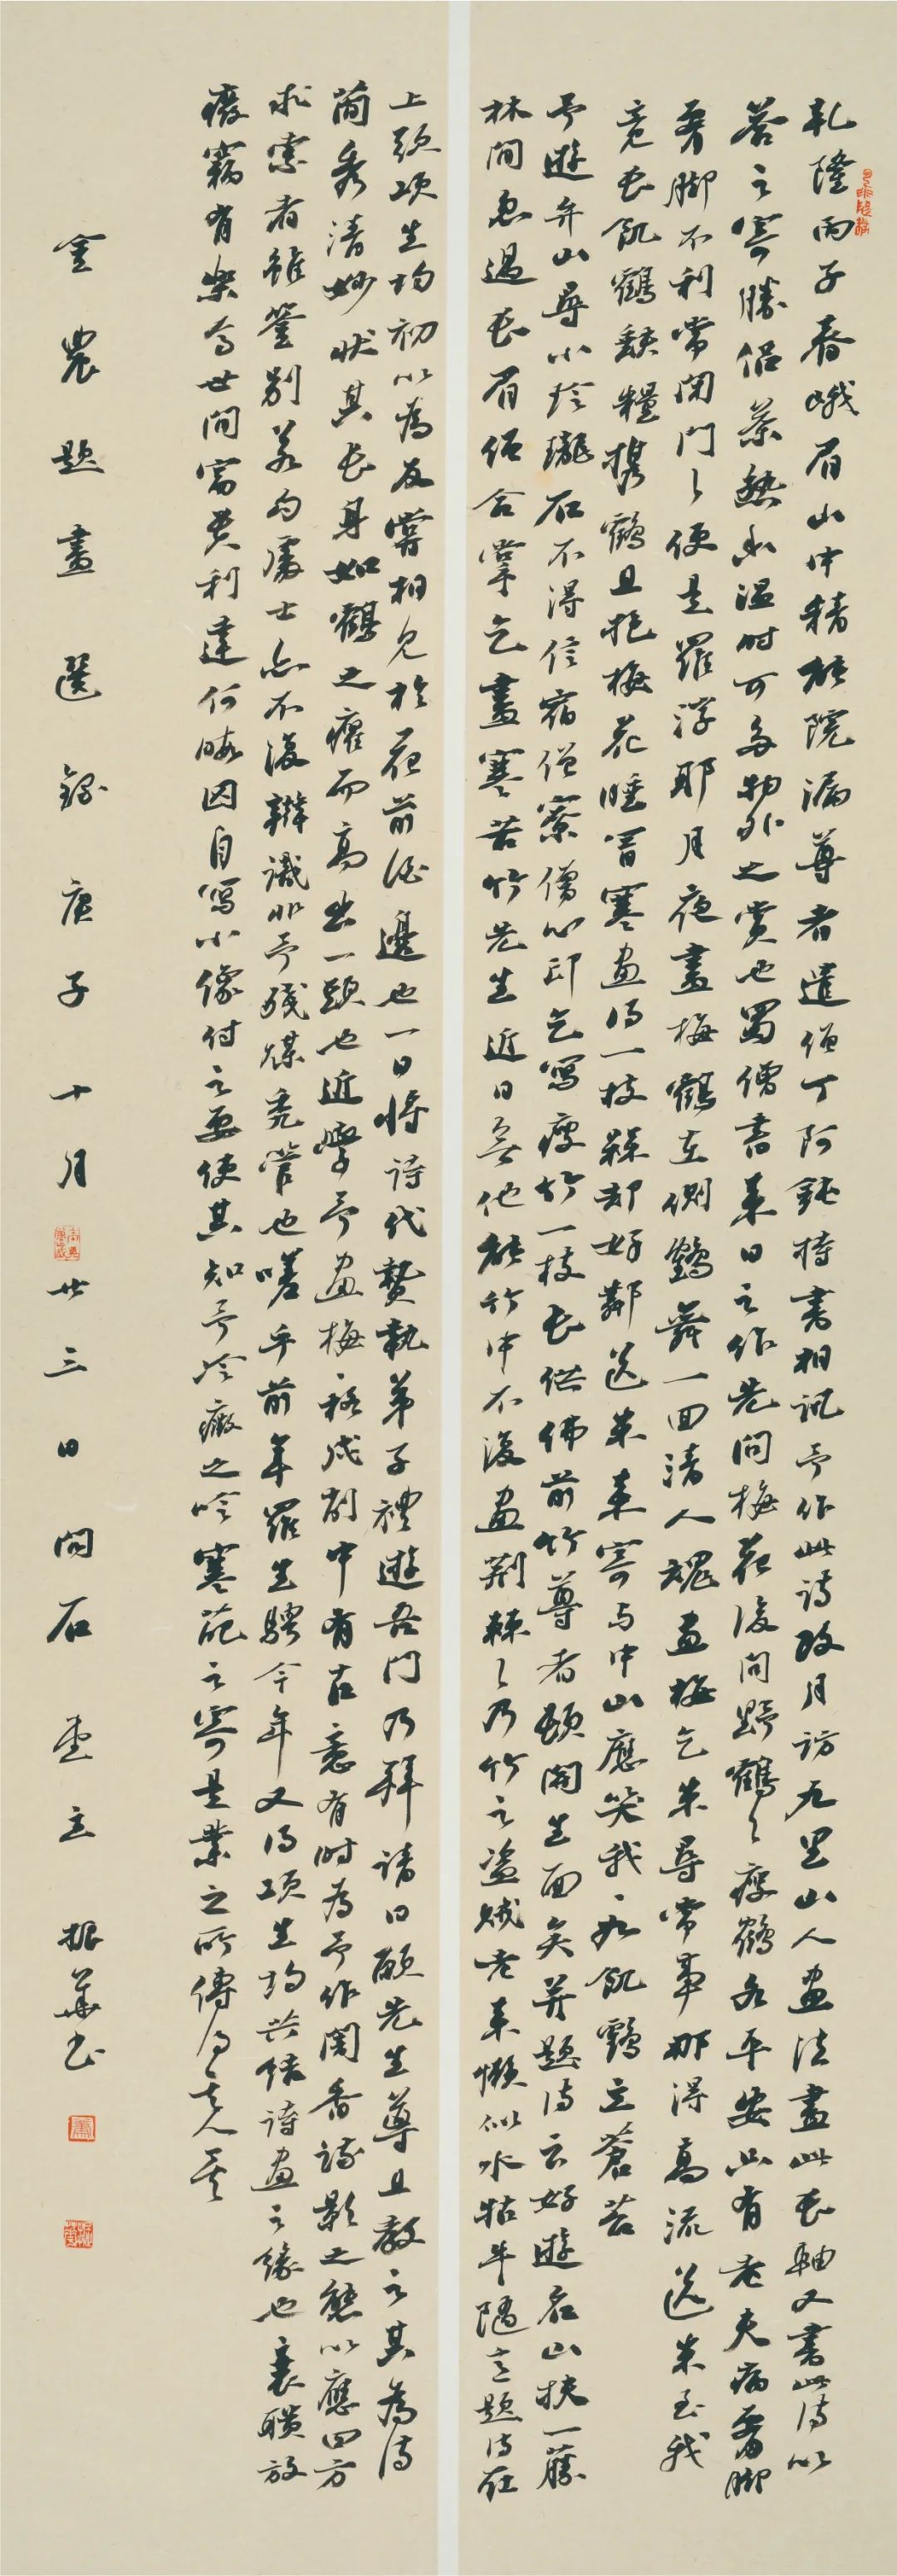 乾隆丙子春峨眉山中精能院漏尊者遣侲丁阿鈍持書相訊予作此詩政月訪九里山人畫法畫此長軸又書此詩以
答之寄勝侶茶熟香溫時可為物外之賞也蜀僧書來日之作先問梅花後問野鶴々瘦鶴各平安只有老夫病脚
脚不利常閉門々便是羅浮耶月夜畫梅鶴在側鶴舞一回清人魂畫梅乞米尋常事那得高流送米至我
竟長飢鶴缺糧攜鶴且抱梅花睡冒寒畫得一枝梅却好鄰送米來寄与中山應笑我我如飢鶴立蒼苔
予遊弁山尋小玲瓏石不得信宿僧寮僧心印乞寫瘦竹一枝長供佛前竹尊者頓開生面矣并題詩云好遊名山挾一藤
林間急過長眉僧合掌乞畫寒苦竹先生近日無他能竹中不復畫荊棘々乃竹之盜賊老來懶似水牯牛隨意題詩在
上頭項生均初以為友嘗相見於花前酒邊也一日將詩代贄執弟子禮遊吾門乃拜請曰願先生尊且教之其為詩
簡秀清妙狀其長身如鶴之癯而高出一頭也近學予畫梅梅稱成前中有古意有時為予作闇香疏影之態以應四方
求索者雖鑒別若勾處士亦不復辨識非予殘煤禿管也嗟乎前年羅生聘今年又得項生均共結詩畫之緣也衰聵放
癈竊有樂焉世間富貴利達何晦因自寫小像付之要使其知予冷癡之吟寒葩之寄是業之所傳得其人矣
金農題畫選錄庚子十月廿三日問石堂主振華書